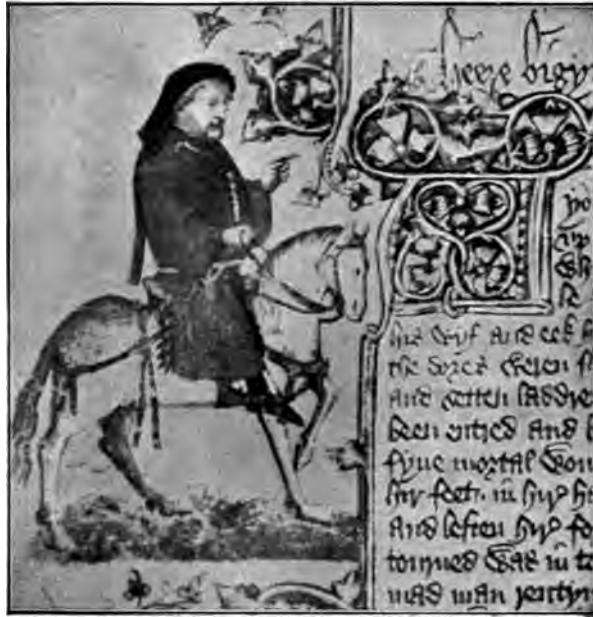 Heere bigyn
yo
up
Wh
his wyf and eek h
the dores weren f
and setten laddre
been entred and
fyue mortal Woun
hir feet, in hir h
And leften hir fo
torned was in to
mad man rentyn